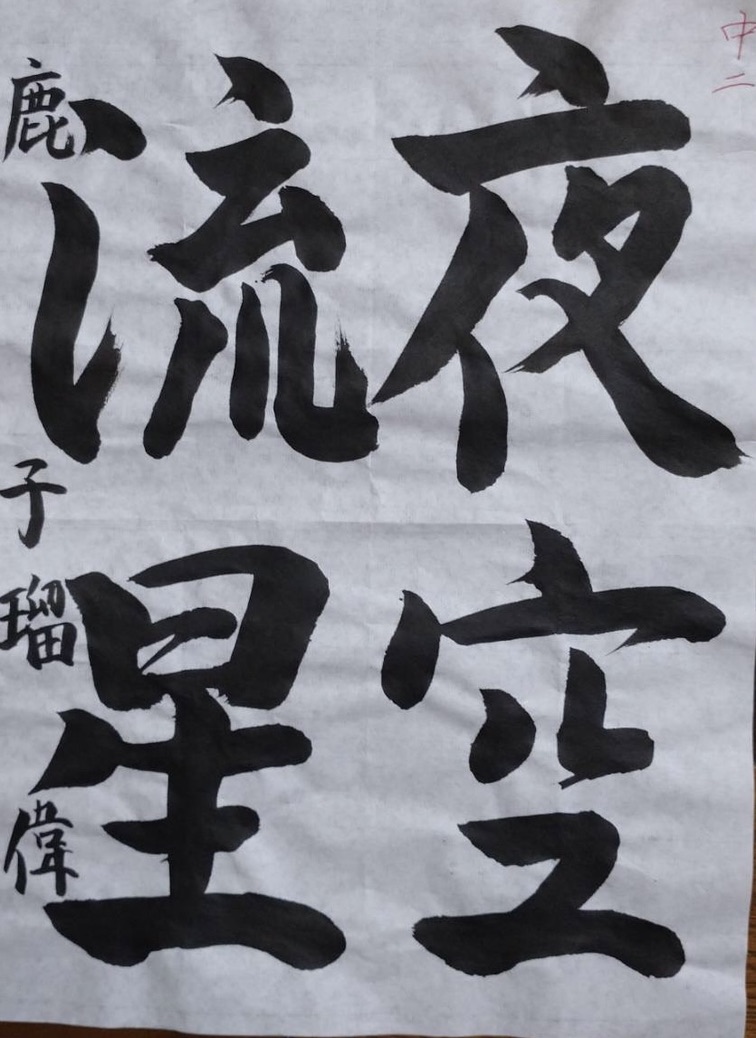 中二
夜空
流星
鹿子瑠偉